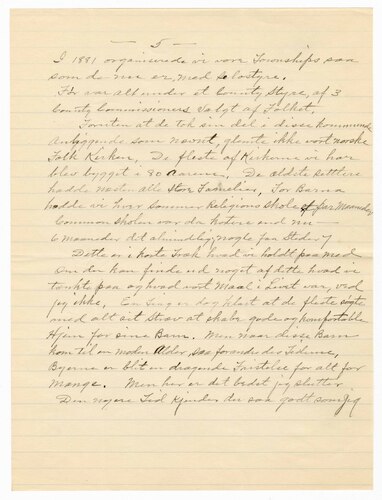 — 5 —
I 1881 organiserede vi vore Townships saa
som de nu er, med selvstyre.
Før var alt under et County Styre, af 3
County Commissioners valgt af Folket,
Foruten at de tok sin del i disse kommunale
Anliggende som nævnt, glemte ikke vort norske
Folk Kirken, De fleste af Kirkerne vi har
blev bygget i 80 aarene, De aldste settlere
hadde næsten alle Store Familier, For Barna
hadde vi hver Sommer Religions Skole et par Maaneder
Common Skolen var da kortere end nu
6 Maaneder det almindelig, nogle faa Steder 7
Dette er i korte Træk hvad vi holdt paa med
Om du kan finde ud noget af dette hvad vi
tænkte paa og hvad vort Maal i Livet var, ved
jeg ikke, En Ting er dog klart at de fleste søgte
med alt sit Stræv at skabe gode og komfortable
Hjem for sine Barn. Men naar disse Barn
kom til en moden Alder, saa forandres Tiderne,
Byerne er blit en dragende Fristelse for alt for
mange. Men her er det bedst jeg slutter.
Den nyere Tid kjender du saa godt som jeg